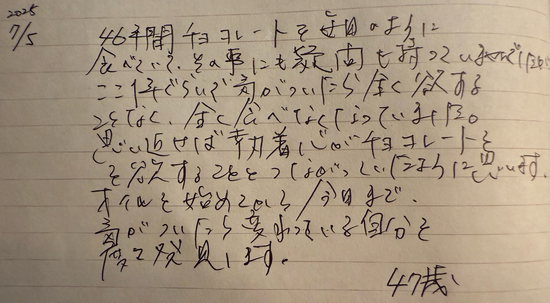 2025
7/5
46年間チョコレートを毎日のように
食べていて、その事にも疑問も持っていませんでしたが
ここ1年ぐらいで気がついたら全く欲する
ことなく、全く食べなくなっていました。
思い返せば執着心がチョコレートを
を欲することとつながっていたように思います。
を始めてから今日まで、
気がついたら変わっている自分を
度々発見します。
47歳